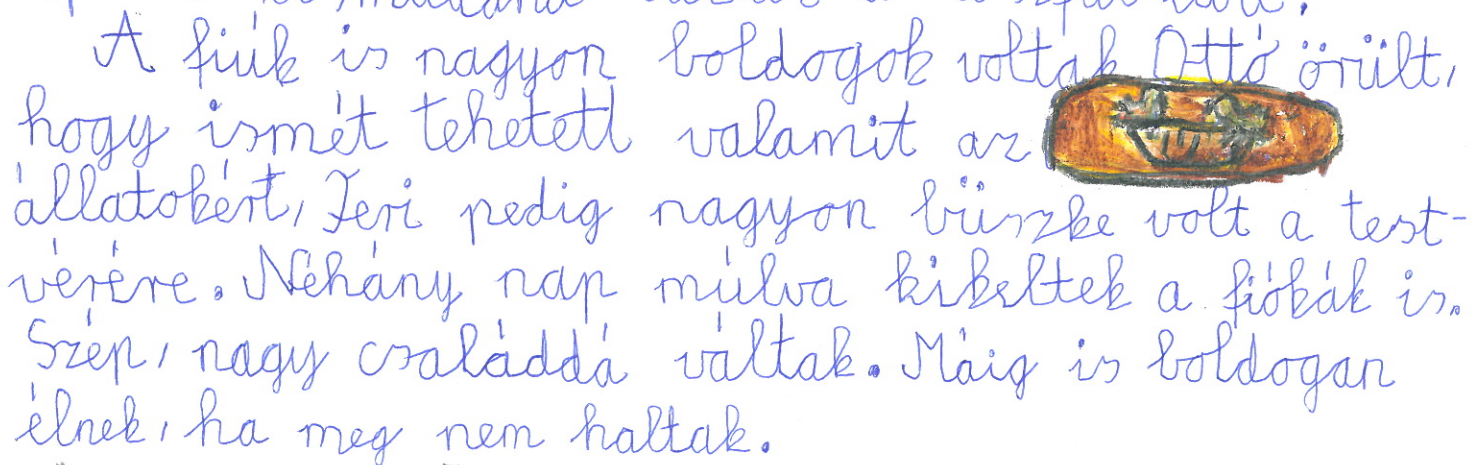 A fiúk is nagyon boldogok voltak Ottó örült,
hogy ismét tehetett valamit az
állatokért, Feri pedig nagyon büszke volt a test-
vérére. Néhány nap múlva kikeltek a fiókák is.
Szép, nagy családdá váltak. Máig is boldogan
élnek, ha meg nem haltak.